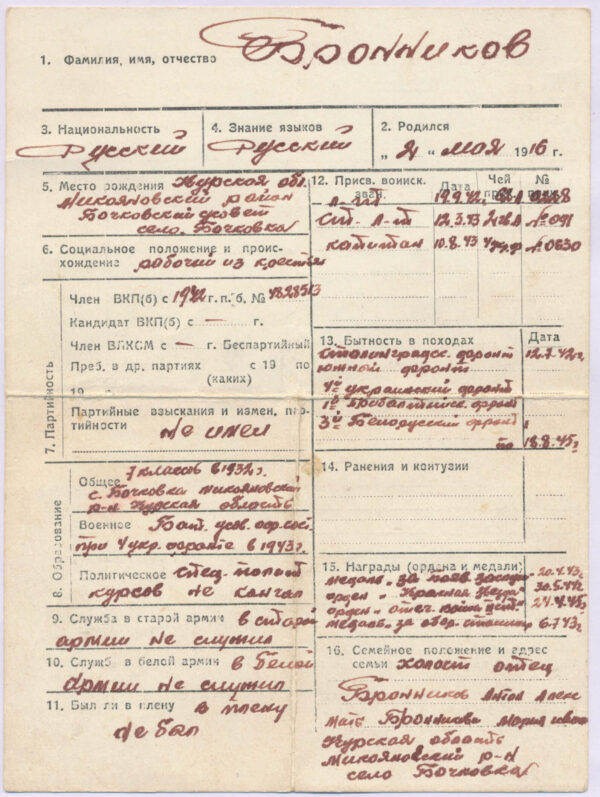 1. Фамилия, имя, отчество Бронников
3. Национальность
Русский
4. Знание языков
Русский
2. Родился
" " мая 1916 г.
5. Место рождения Курская обл.
Микояновский район
Бочковский с/совет
село Бочковка
6. Социальное положение и проис-
хождение рабочий из крестьян
7. Партийность
Член ВКП(б) с 1942 г. п. б. № 4828513
Кандидат ВКП(б) с — г.
Член ВЛКСМ с — г. Беспартийный
Преб. в др. партиях с 19 по
(каких)
19
Партийные взыскания и измен. пар-
тийности
не имел
8. Образование
Общее 7 классов в 1932 г.
с. Бочковка Микояновский
р-н Курская область
Военное Бат. усов. оф. сост.
при 4 укр. фронте в 1943 г.
Политическое спец. полит
курсов не кончал
9. Служба в старой армии в старой
армии не служил
10. Служб. в белой армии в белой
армии не служил
11. Был ли в плену в плену
не был
12. Присв. воинск.
зван.
Дата
Чей
№
л-нт 19.9.42
Ст. л-т 12.3.43 № 091
капитан 10.8.43 № 0630
13. Бытность в походах
Дата
Сталинградск. фронт 12.7.42 г.
южный фронт
4й Украинский фронт
1й Прибалтийск. фронт
3й Белорусский фронт
по 18.8.45 г.
14. Ранения и контузии
15. Награды (ордена и медали)
медаль "за боев. заслуги" 20.4.43 г.
орден "Красная Звезда" 30.5.44 г.
орден "отеч. войны 24.4.45 г.
медаль за обор. Сталингр. 6.7.43 г.
16. Семейное положение и адрес
семьи холост отец
Бронников Антон Алекс
мать Бронникова Мария
Курская область
Микояновский р-н
село Бочковка